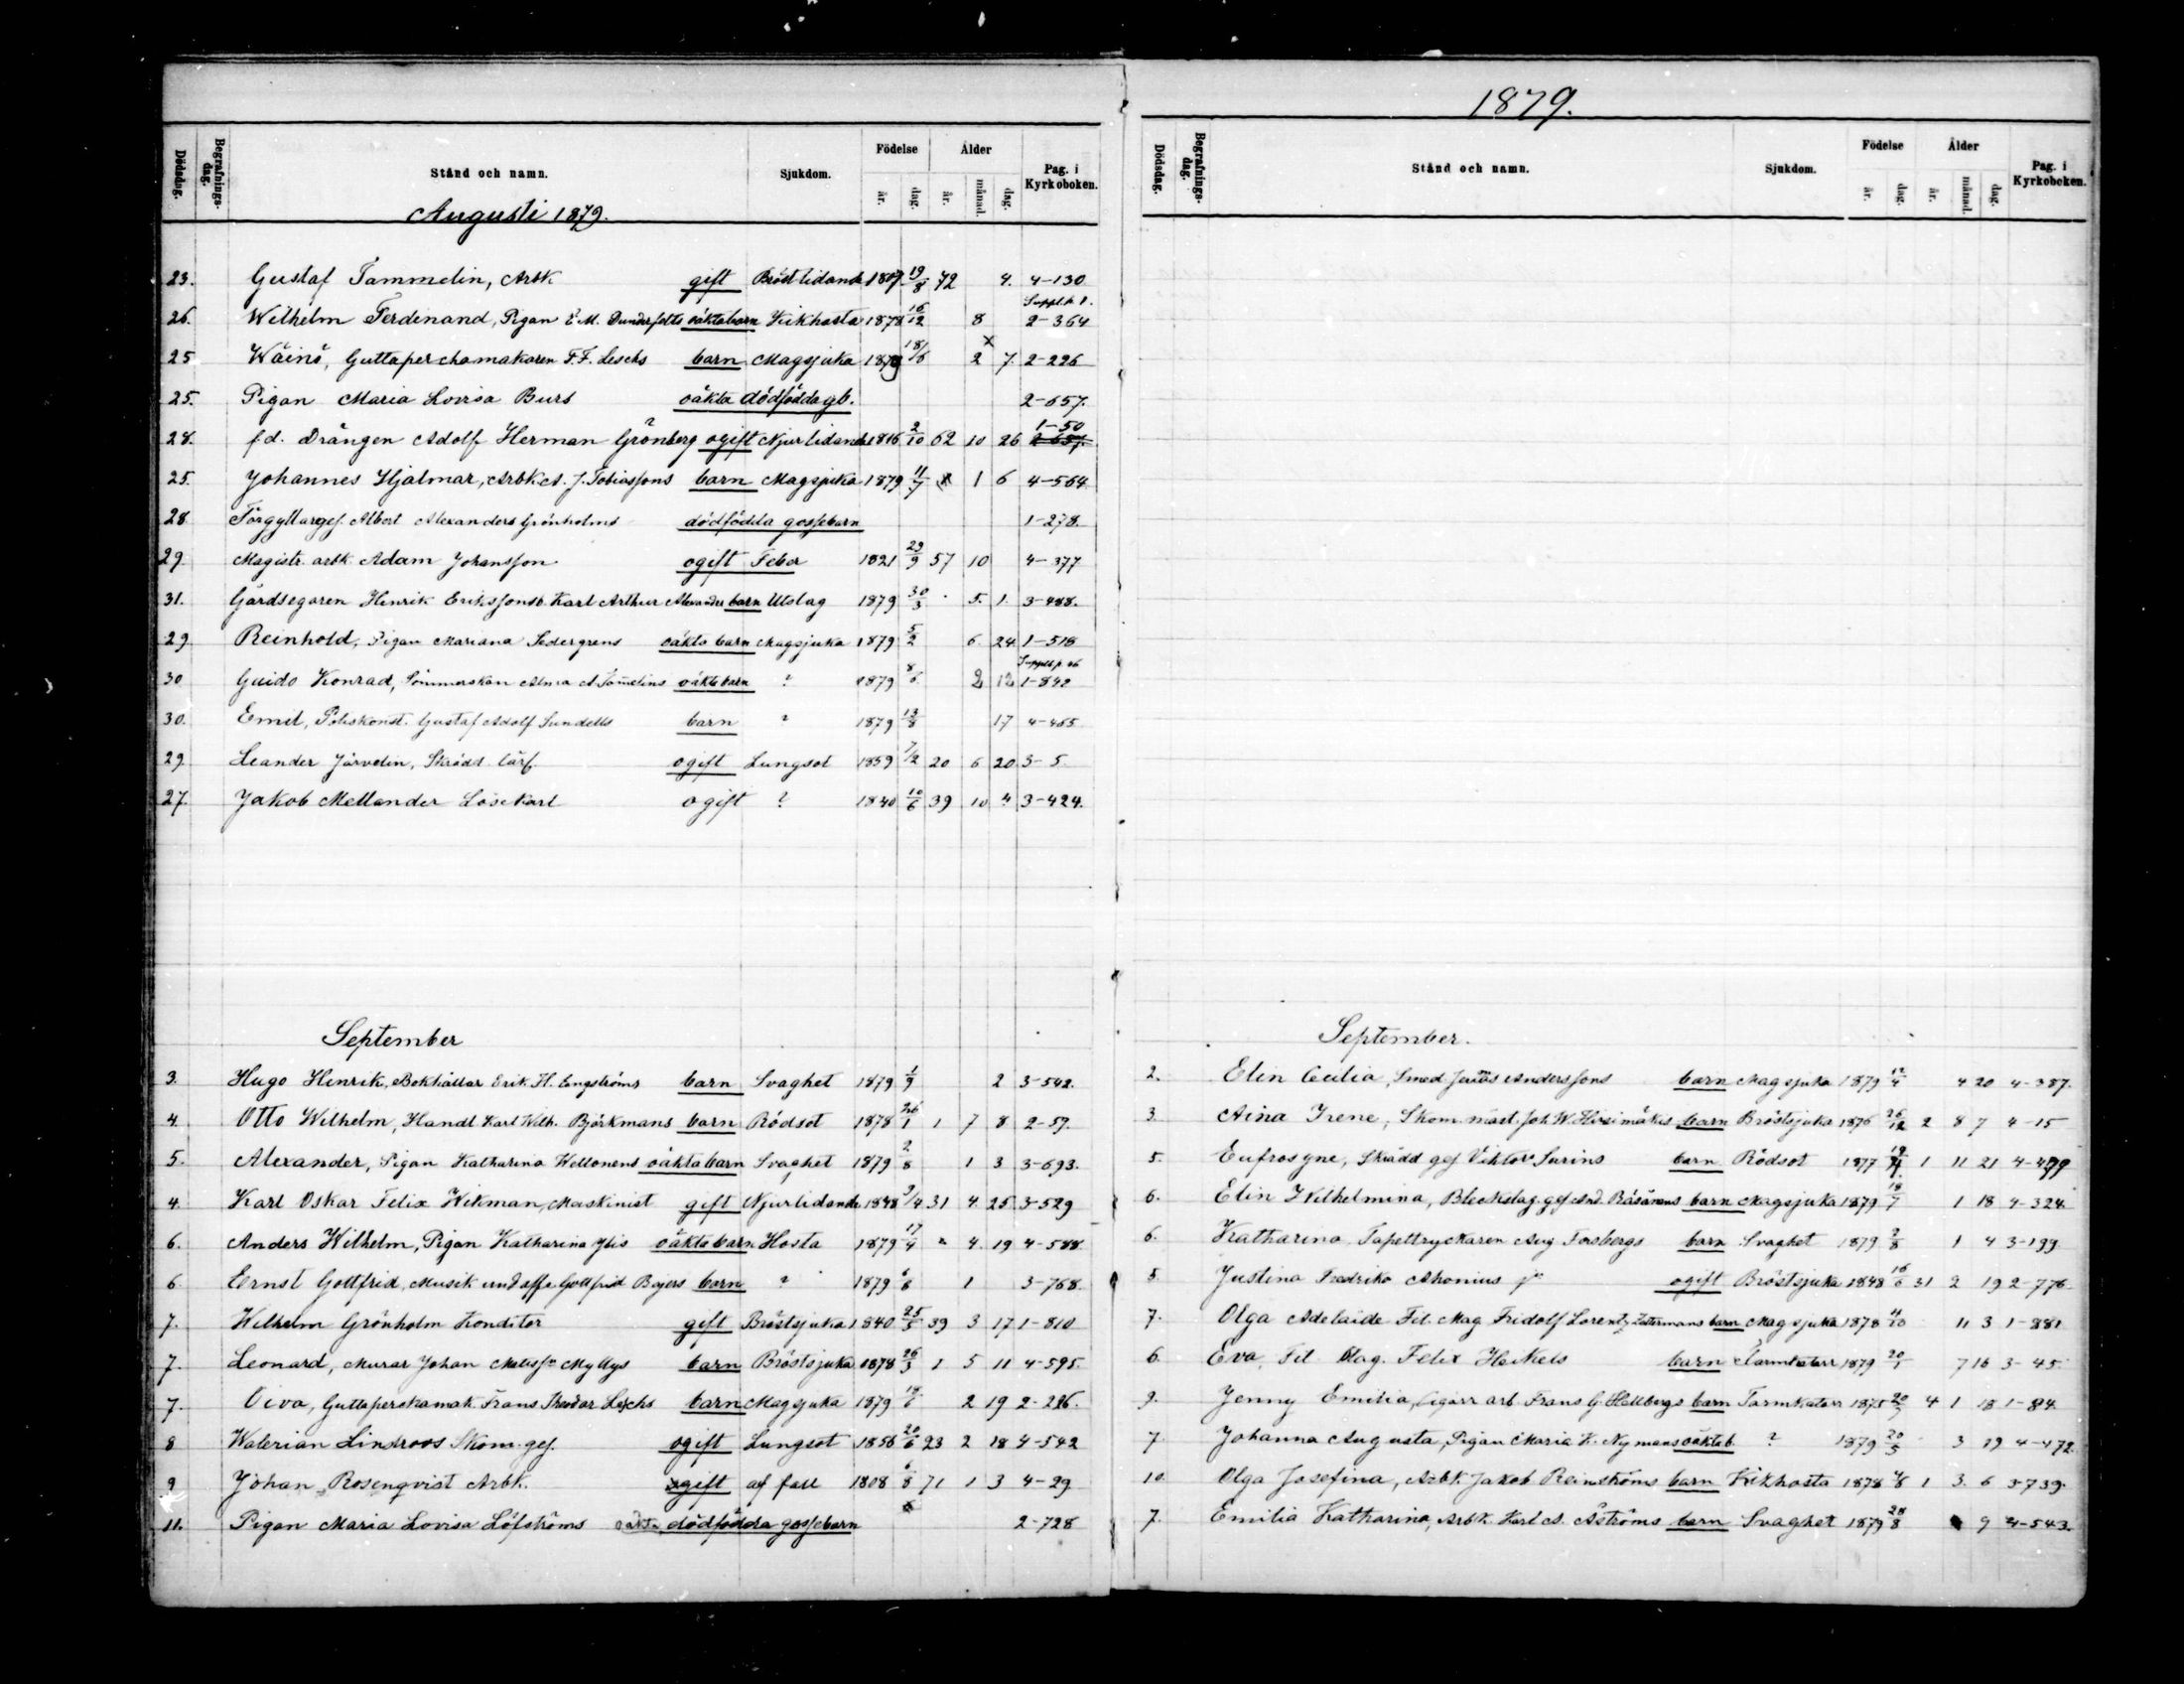 1879.
Dödsdag. Begrafnings-dag. Stånd och namn. Sjukdom. Födelse år. dag. Ålder år. månad. dag. Pag. i Kyrkoboken.
Augusti 1879.
23. Gustaf Tammelin, Arbk gift Bröstlidande 1807 19/8 72 4. 4-130
26. Wilhelm Ferdinand, Pigan E. M. oäkta barn Kikhosta 1878 16/12 8 2-364
25 Wäinö, Guttaperchamakaren F. F. Leschs barn Magsjuka 1879 18/6 2 7. 2-226
25. Pigan Maria Lovisa Burs oäkta dödfödda gb. 2-657.
28. f.d. Drängen Adolf Herman Grönberg ogift Njurlidande 1816 2/10 62 10 26 1-50
25. Johannes Hjalmar, Arbk A. J. Tobiassons barn Magsjuka 1879 11/7 1 6 4-564
28. Förgyllaregef. Albert Alexanders Grönholms dödfödda gossebarn 1-278.
29. Magistr. arbk. Adam Johansson ogift Feber 1821 29/9 57 10 4-377
31. Gårdsegaren Henrik Erikssons b. Karl Arthur Alexander barn Utslag 1879 30/3 5. 1. 3-488.
29. Reinhold, Pigan Mariana Sedergrens oäkta barn Magsjuka 1879 5/2 6. 24 1-518
30 Guido Konrad, Sömmerskan Alma A. Tam̃elins oäkta barn ? 1879 8/6 2 12 1-842
30. Emil, Poliskonst. Gustaf Adolf Sundells barn ? 1879 13/8 17 4-465
29. Leander Järvelin, Skrädd. lärl. ogift Lungsot 1859 7/12 20 6 20 3-5.
27. Jakob Mellander Lösekarl ogift ? 1840 10/6 39 10 4 3-424.
September
3. Hugo Henrik, Bokhållar Erik H. Engströms barn Svaghet 1879 1/9 2 3-542.
4. Otto Wilhelm, Handl. Karl Wilh. Björkmans barn Rödsot 1878 26/1 1 7 8 2-57.
5. Alexander, Pigan Katharina Wellonens oäkta barn Svaghet 1879 2/8 1 3 3-693.
4. Karl Oskar Felix Wikman, Maskinist gift Njurlidande 1848 9/4 31 4. 25. 3-529
6. Anders Wilhelm, Pigan Katharina Ylis oäkta barn Hosta 1879 17/4 " 4. 19 4-588
6 Ernst Gottfrid, Musik undoffr. Gottfrid Bojers barn ? 1879 6/8 1 3-768.
7. Wilhelm Grönholm Konditor gift Bröstsjuka 1840 25/5 39 3 17 1-810
7. Leonard, Murar Johan Myllys barn Bröstsjuka 1878 26/3 1 5 11 4-595.
7. Oiva, Guttaperkamak. Frans Theodor Leschs barn Magsjuka 1879 18/6 2 19 2-226.
8 Walerian Lindroos Skom. gef. ogift Lungsot 1856 20/6 23 2 18 4-542
9 Johan Rosenqvist Arbk. gift af fall 1808 6/8 71 1 3 4-29
11. Pigan Maria Lovisa Löfströms oäkta dödfödda gossebarn 2-728
Dödsdag. Begrafnings-dag. Stånd och namn. Sjukdom. Födelse år. dag. Ålder år. månad. dag. Pag. i Kyrkoboken.
September.
2. Elin Cecilia, Smed Anderssons barn Magsjuka 1879 12/4 4 20 4-387.
3. Aina Irene, Skom. mäst. Joh. W. Hirsimäkis barn Bröstsjuka 1876 26/12 2 8 7 4-15
5. Eufrosyne, Skrädd. gef. Viktor Surins barn Rödsot 1877 1 11 21 4-499
6. Elin Wilhelmina, Bleckslag. gef. And. Räsänens barn Magsjuka 1879 18/7 1 18 4-324.
6. Katharina Tapettryckaren Aug Forsbergs barn Svaghet 1879 2/8 1 4 3-199.
5. Justina Fredrika Ahonius ogift Bröstsjuka 1848 16/6 31 2 19 2-776.
7. Olga Adelaide Fil. Mag. Fridolf Lorentz barn Magsjuka 1878 4/10 11 3 1-881
6. Eva, Fil. Mag. Felix Heikels barn Tarmkatarr 1879 20/1 7 16 3-45.
9. Jenny Emilia, Cigarr arb. Frans G. Hellbergs barn Tarmkatarr 1875 20/7 4 1 18 1-84.
7. Johanna Augusta, Pigan Maria K. Nymans oäkta b. ? 1879 20/5 3 19 4-472.
10. Olga Josefina, Arbk. Jakob Reinströms barn Kikhosta 1878 4/8 1 3. 6 3-739.
7. Emilia Katharina, Arbk. Karl A. Åströms barn Svaghet 1879 28/8 9 4-543.